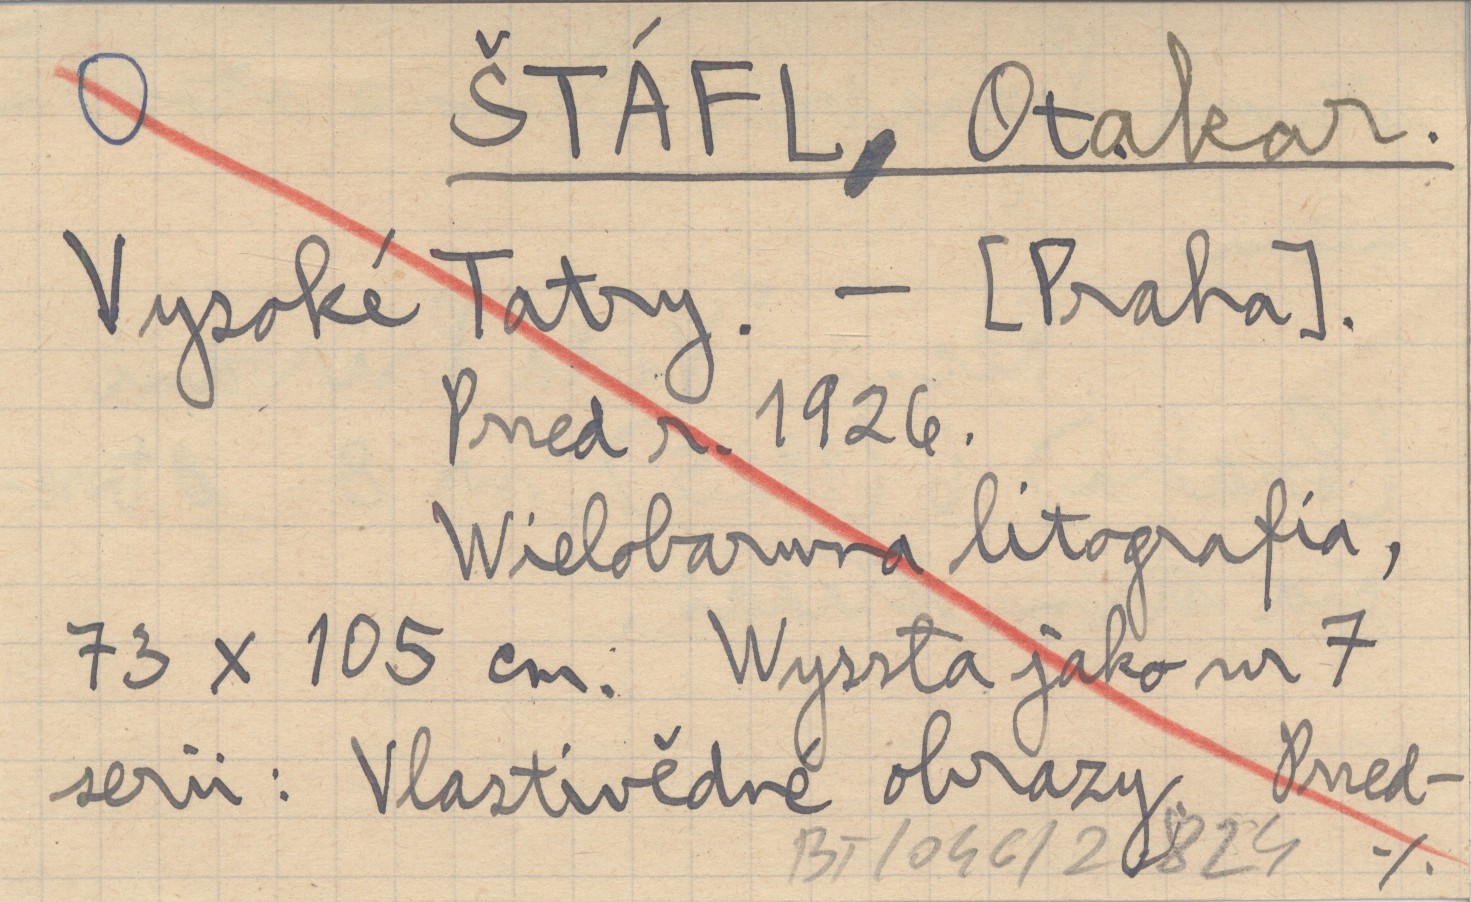 O ŠTÁFL, Otakar.
Vysoké Tatry. — [Praha].
Przed r. 1926.
Wielobarwna litografia,
73 x 105 cm. Wyszła jako nr 7
serii: Vlastivědné obrazy Przed-
BT/046/2 824 -/.